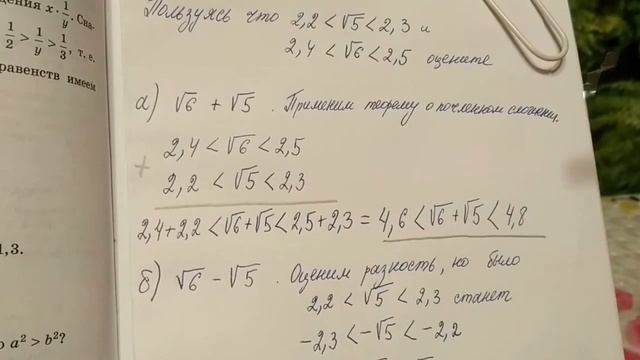 ения x · 1/y. Сна-
1/2 > 1/y > 1/3, т. е.
равенств имеем
1,3.
о a² > b²?
Пользуясь что 2,2 < √5 < 2,3 и
2,4 < √6 < 2,5 оцените
а) √6 + √5. Применим теорему о почленном сложении.
2,4 < √6 < 2,5
+
2,2 < √5 < 2,3
2,4+2,2 < √6+√5 < 2,5+2,3 = 4,6 < √6+√5 < 4,8
б) √6 - √5. Оценим разность, но было
2,2 < √5 < 2,3 станет
-2,3 < -√5 < -2,2